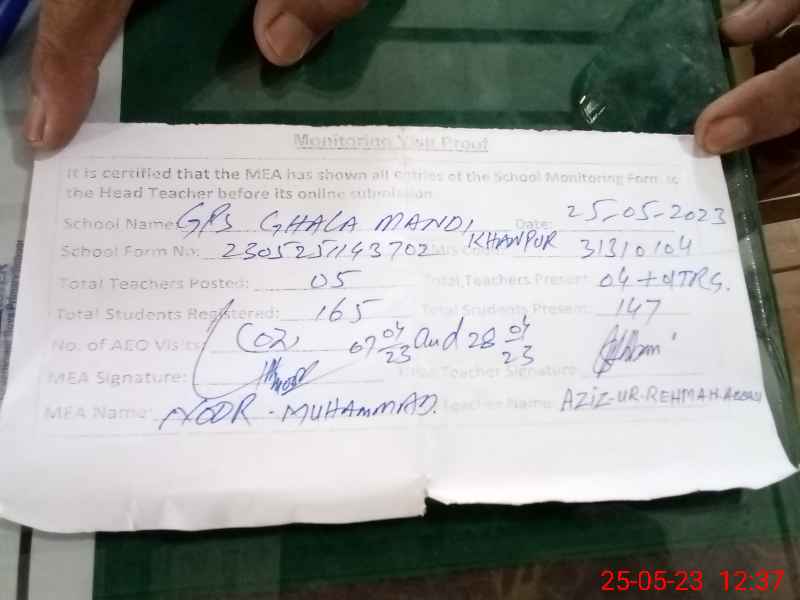 Monitoring Visit Proof
It is certified that the MEA has shown all entries of the School Monitoring Form to
the Head Teacher before its online submission.
School Name: GPS GHALA MANDI, KHANPUR Date: 25-05-2023
School Form No: 2305251143702 31310104
Total Teachers Posted: 05 Total Teachers Present: 04 +
Total Students Registered: 165 Total Students Present: 147
No. of AEO Visits: (02) 07 04/23 and 28 04/23
MEA Signature: Teacher Signature
MEA Name: NOOR - MUHAMMAD. Teacher Name: AZIZ-UR-REHMAN
25-05-23 12:37